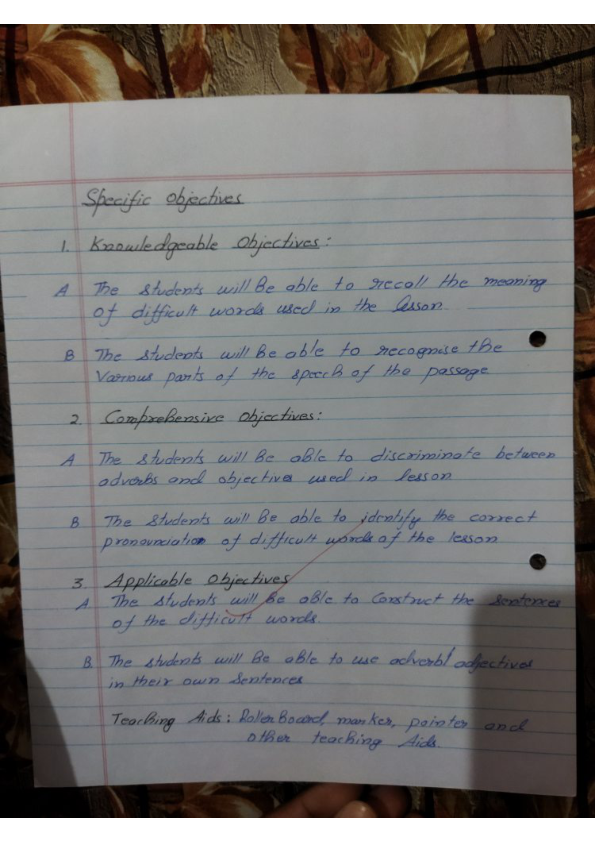 Specific Objectives
1. Knowledgeable Objectives:
A The students will Be able to recall the meaning
of difficult words used in the lesson.
B The students will Be able to recognise the
Various parts of the speech of the passage
2. Comprehensive Objectives:
A The students will Be able to discriminate between
adverbs and objectives used in lesson
B. The students will Be able to identify the correct
pronounciation of difficult words of the lesson
3. Applicable Objectives
A. The students will Be able to Construct the Sentences
of the difficult words.
B. The students will Be able to use adverb/ adjectives
in their own Sentences
Teaching Aids: RollerBoard, marker, pointer and
other teaching Aids.